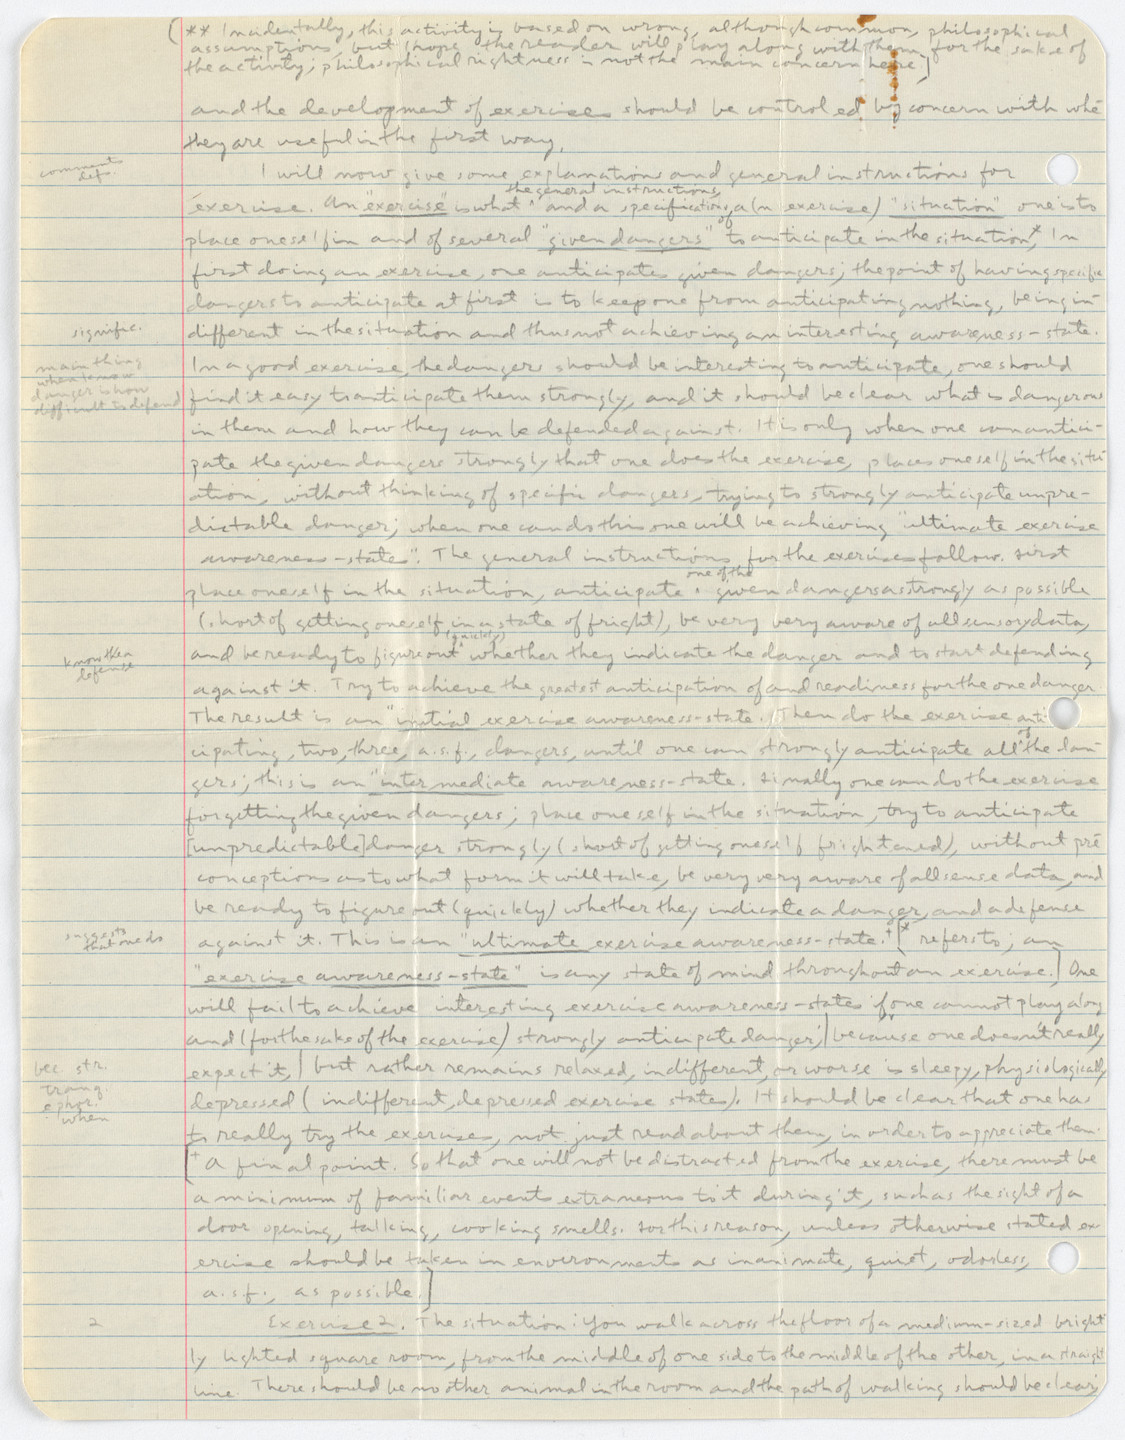 (** Incidentally, this activity is based on wrong, although common, philosophical
assumptions, but I hope the reader will play along with them for the sake of
the activity; philosophical rightness is not the main concern here.)
and the development of exercises should be controled by concern with whe-
they are useful in the first way.
comment
defs.
I will now give some explanations and general instructions for
exercise. An "exercise" is what ^ and a specifications, a(n exercise) "situation" one is to
the general instructions,
of
place oneself in and of several "given dangers" to anticipate in the situation.* In
first doing an exercise, one anticipates given dangers; the point of having specific
dangers to anticipate at first is to keep one from anticipating nothing, being in-
signific.
different in the situation and thus not achieving an interesting awareness-state.
main thing
when know
danger is how
difficult to defend
In a good exercise, the dangers should be interesting to anticipate, one should
find it easy to anticipate them strongly, and it should be clear what is dangerous
in them and how they can be defended against. It is only when one can antici-
pate the given dangers strongly that one does the exercise, places oneself in the situ-
ation, without thinking of specific dangers, trying to strongly anticipate unpre-
dictable danger; when one can do this one will be achieving "ultimate exercise
awareness-states". The general instructions for the exercises follow. First
place oneself in the situation, anticipate ^ given dangers as strongly as possible
one of the
(short of getting oneself in a state of fright), be very very aware of all sensory data,
know the
defense
and be ready to figure out ^ whether they indicate the danger and to start defending
(quickly)
against it. Try to achieve the greatest anticipation of and readiness for the one danger
The result is an "initial exercise awareness-state. Then do the exercise anti-
cipating, two, three, a.s.f., dangers, until one can strongly anticipate all of the dan-
gers; this is an "intermediate awareness-state. Finally one can do the exercise
forgetting the given dangers; place oneself in the situation, try to anticipate
[unpredictable] danger strongly (short of getting oneself frightened), without pre-
conceptions as to what form it will take, be very very aware of all sense data, and
be ready to figure out (quickly) whether they indicate a danger, and a defense
suggests
that one do
against it. This is an "ultimate exercise awareness-state.† [* refers to; an
"exercise awareness-state" is any state of mind throughout an exercise.] One
will fail to achieve interesting exercise awareness-states if one cannot play along
and (for the sake of the exercise) strongly anticipate danger, | because one doesn't really
bec. str.
tranq.
ephor.
when
expect it, | but rather remains relaxed, indifferent, or worse is sleepy, physiologically
depressed (indifferent, depressed exercise states). It should be clear that one has
to really try the exercises, not just read about them, in order to appreciate them.
[† A final point. So that one will not be distracted from the exercise, there must be
a minimum of familiar events extraneous to it during it, such as the sight of a
door opening, talking, cooking smells. For this reason, unless otherwise stated ex-
ercise should be taken in environments as inanimate, quiet, odorless,
a.s.f., as possible.]
2
Exercise 2. The situation: You walk across the floor of a medium-sized bright-
ly lighted square room, from the middle of one side to the middle of the other, in a straight
line. There should be no other animal in the room and the path of walking should be clear;